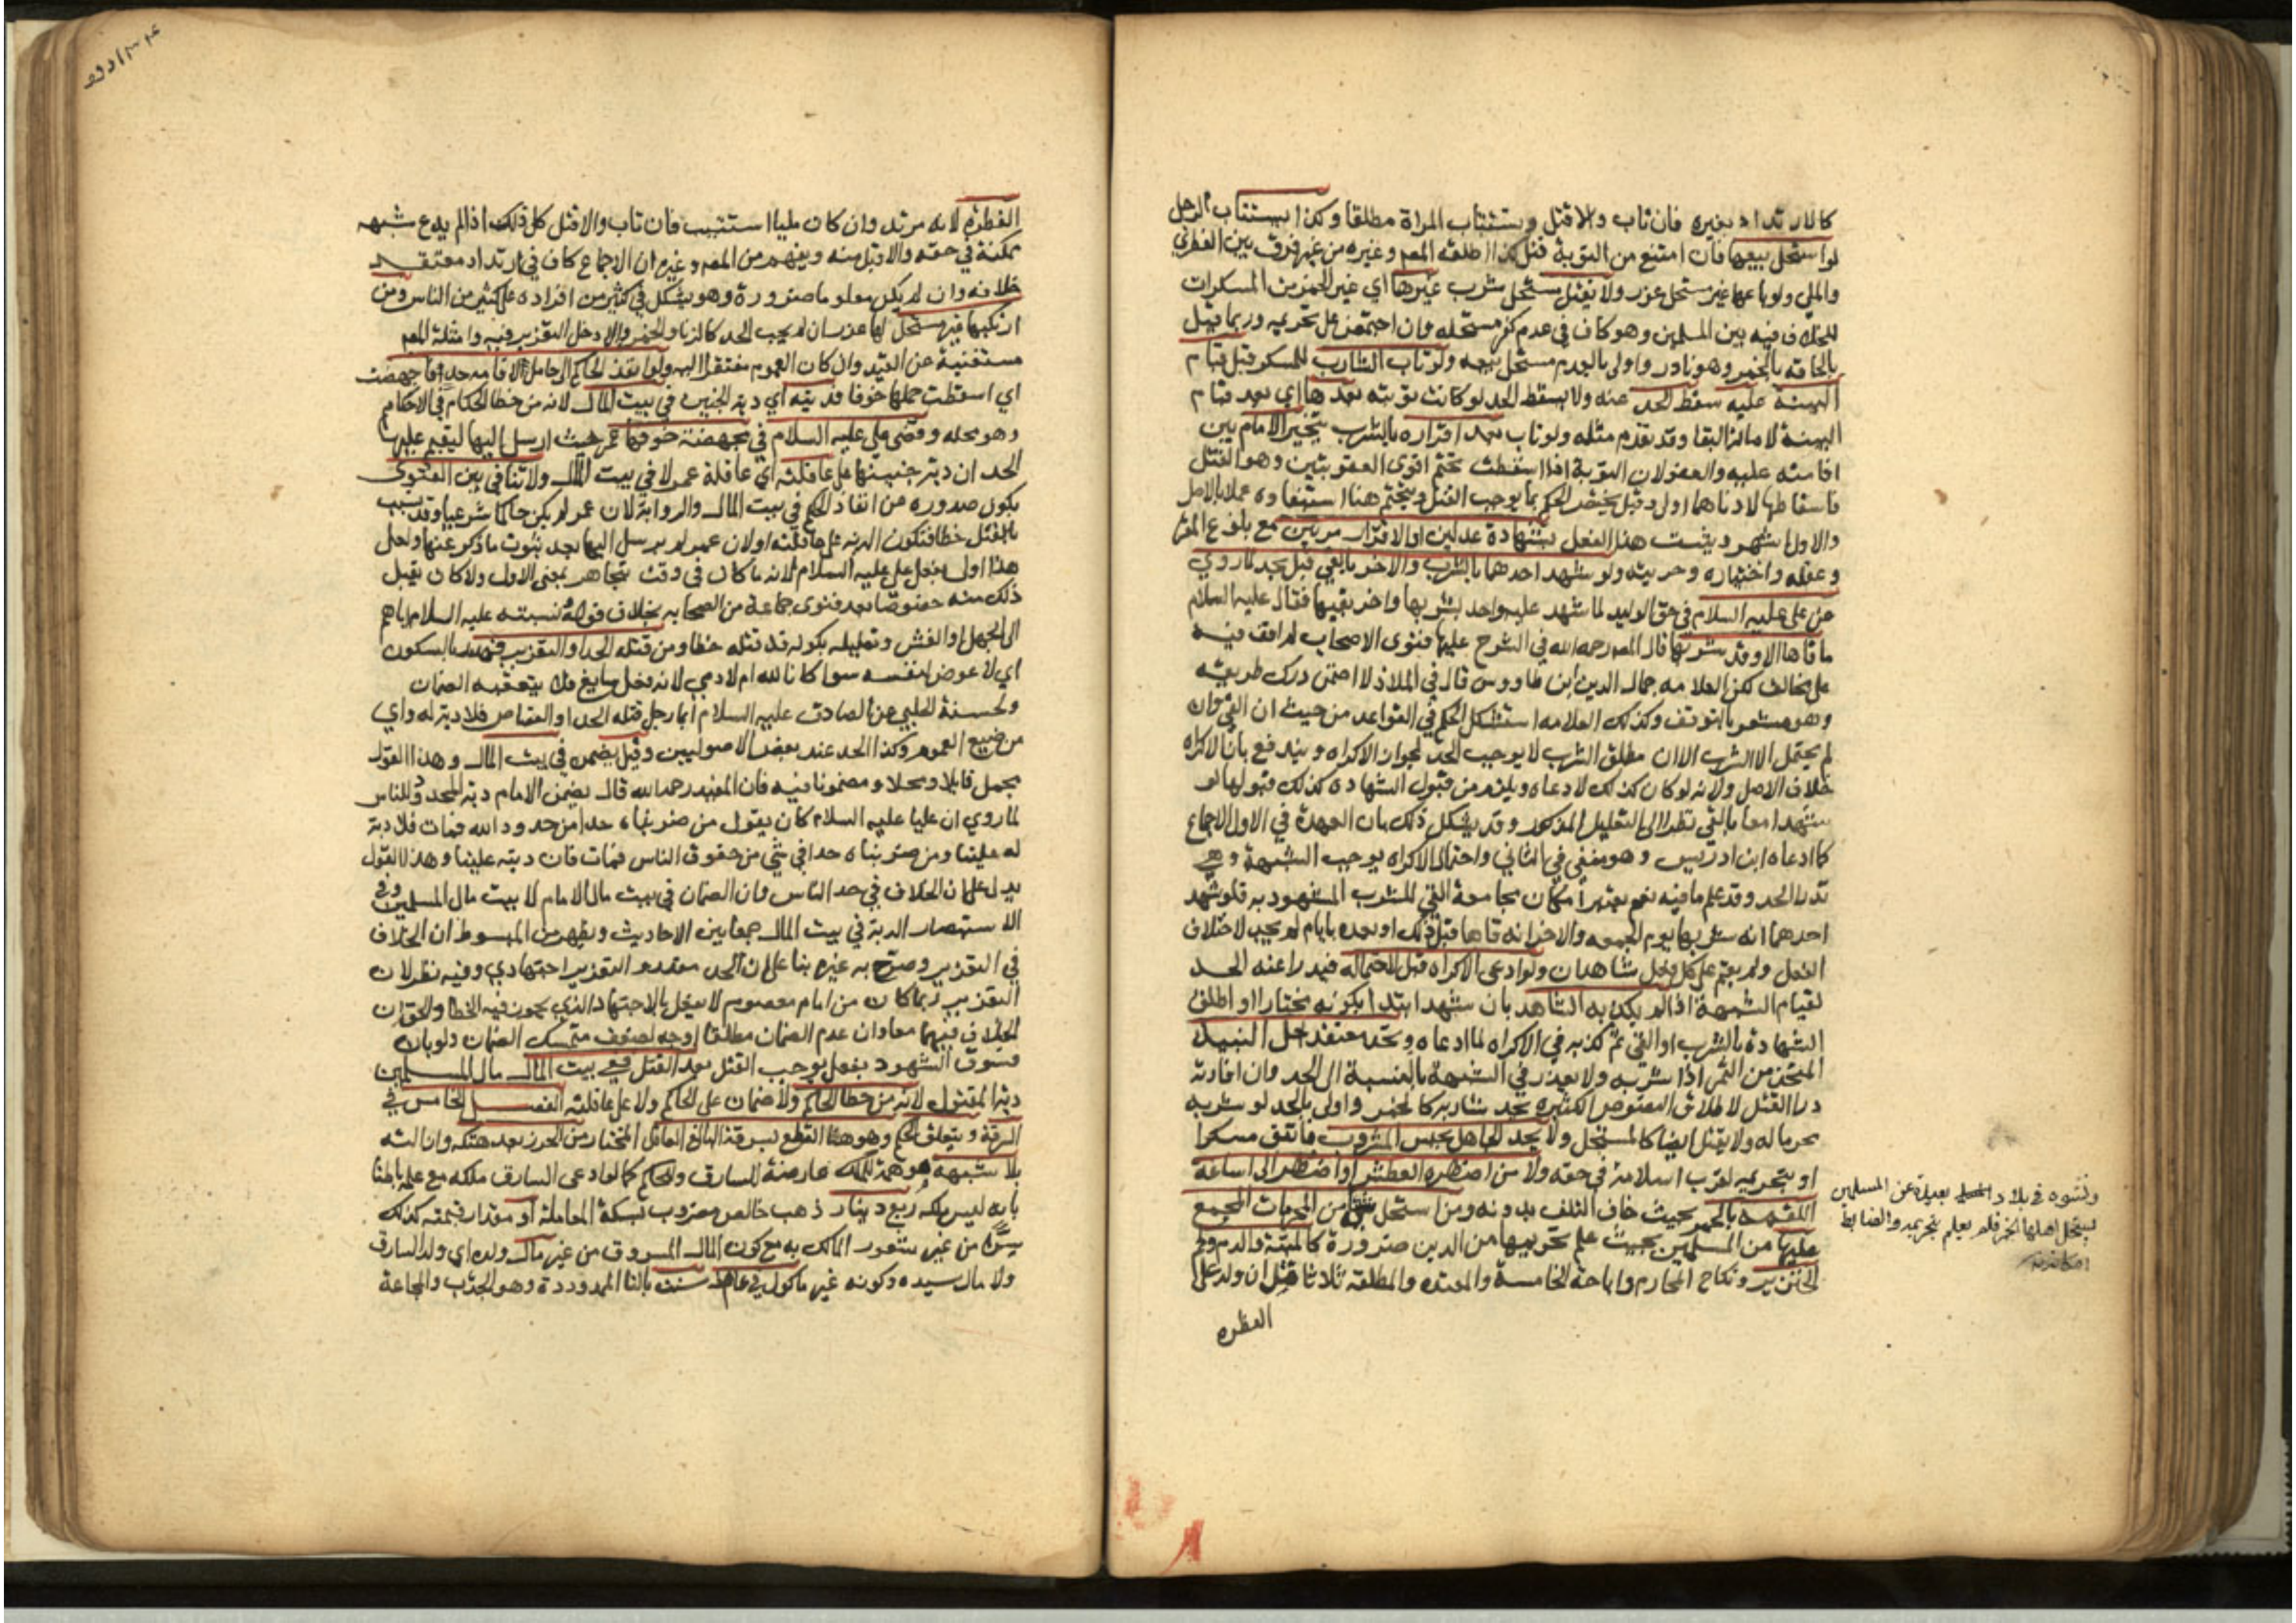 كالارتداد بغيره فان تاب والا قتل ويستتاب المراة مطلقا وكذا يستتاب الرجل
لو استحل بيعها فان امتنع من التوبة قتل كذا اطلقه المصـ وغيره من غير فرق بين الفطري
والملي ولو باعها غير مستحل عزر ولا يقتل مستحل شرب غيرها اي غير الخمر من المسكرات
للخلاف فيه بين المسلمين وهو كاف في عدم كفر مستحله وان اجتمعنا على تحريمه وربما قيل
بالحاقه بالخمر وهو نادر واولى بالعدم مستحل بيعه ولو تاب الشارب للمسكر قبل قيام
البينة عليه سقط الحد عنه ولا يسقط الحد لو كانت توبته بعدها اي بعد قيام
البينة لاصالة البقا وقد تقدم مثله ولو تاب بعد اقراره بالشرب يتخير الامام بين
اقامته عليه والعفو لان التوبة اذا اسقطت تحتم اقوى العقوبتين وهو القتل
فاسقاطها لادناهما اولى وقيل يختص الحكم بما يوجب القتل ويتحتم هنا استيفاوه عملا بالاصل
والاول اشهر ويثبت هذا الفعل بشهادة عدلين او الاقرار مرتين مع بلوغ المقر
وعقله واختياره وحريته ولو شهد احدهما بالشرب والاخر بالقي قبل يحد لما روي
عن علي عليه السلام في حق الوليد لما شهد عليه واحد بشربها واخر بقيها فقال عليه السلام
ما قاها الا وقد شربها قال المصـ رحمه الله في الشرح عليها فتوى الاصحاب لم اقف فيه
على مخالف لكن العلامه جمال الدين ابن طاووس قال في الملاذ لا اضمن درك طريقه
وهو مشعر بالتوقف وكذلك العلامه استشكل الحكم في القواعد من حيث ان القي وان
لم يحتمل الا الشرب الا ان مطلق الشرب لا يوجب الحد لجواز الاكراه ويندفع بان الاكراه
خلاف الاصل ولانه لو كان كذلك لادعاه ويلزم من قبول الشهادة كذلك قبولها لو
شهدا معا بالقي نظرا الى التعليل المذكور وقد يشكل ذلك بان العمدة في الاول الاجماع
كما ادعاه ابن ادريس وهو منفي في الثاني واحتمال الاكراه يوجب الشبهة وهي
تدرا الحد وقد علم ما فيه نعم يعتبر امكان مجامعة القي للشرب المشهود به فلو شهد
احدهما انه شربها يوم الجمعه والاخر انه قاها قبل ذلك او بعده بايام لم يحد لاختلاف
الفعل ولم يقم على كل فعل شاهدان ولو ادعى الاكراه قبل لاحتماله فيدرا عنه الحد
لقيام الشبهة اذا لم يكذبه الشاهد بان شهد ابتدا بكونه مختارا او اطلق
الشهادة بالشرب او القي ثم كذبه في الاكراه لما ادعاه ويحد معتقد حل النبيذ
المتخذ من التمر اذا شربه ولا يعذر في الشبهة بالنسبة الى الحد وان افادته
درا القتل لاطلاق النصوص الكثيرة بحد شاربه كالخمر واولى بالحد لو شربه
محرما له ولا يقتل ايضا كالمستحل ولا يحد الجاهل بجنس المشروب فاتفق مسكرا
او بتحريمه لقرب اسلامه في حقه ولا من اضطره العطش او اضطر الى اساغة
اللقمه بالخمر بحيث خاف التلف بدونه ومن استحل شيئا من المحرمات المجمع
عليها من المسلمين بحيث علم تحريمها من الدين ضرورة كالميتة والدم ولحم
الخنزير ونكاح المحارم واباحة الخامسة والمعتده والمطلقه ثلاثا قتل ان ولد على
الفطره
ونشوه في بلاد بعيدة عن المسلمين
يستحل اهلها الخمر فلم يعلم تحريمه والضابط
الفطرة لانه مرتد وان كان مليا استتيب فان تاب والا قتل كل ذلك اذا لم يدع شبهه
ممكنة في حقه والا قبل منه ويفهم من المصـ وغيره ان الاجماع كاف في ارتداد معتقد
خلافه وان لم يكن معلوما ضرورة وهو يشكل في كثير من افراده على كثير من الناس ومن
ارتكبها غير مستحل لها عزر ان لم يجب الحد كالزنا والخمر والا دخل التعزير فيه وامثلة المصـ
مستغنية عن القيد وان كان العموم مفتقرا اليه ولو انفذ الحاكم الى حامل لاقامة حد فاجهضت
اي اسقطت حملها خوفا فديته اي دية الجنين في بيت المال لانه من خطا الحكام في الاحكام
وهو محله وقضى علي عليه السلام في مجهضة خوفها عمر حيث ارسل اليها ليقيم عليها
الحد ان دية جنينها على عاقلته اي عاقلة عمر لا في بيت المال ولا تنافي بين الفتوى
بكون صدوره عن انفاذ الحكم في بيت المال والرواية لان عمر لم يكن حاكما شرعيا وقد تسبب
بالقتل خطا فتكون الدية على عاقلته او لان عمر لم يرسل اليها بعد ثبوت ما ذكر عنها ولعل
هذا اولى بفعل علي عليه السلام لانه ما كان في وقت يتجاهر بمعنى الاول ولا كان يقبل
ذلك منه خصوصا بعد فتوى جماعة من الصحابه بخلاف قوله ونسبته عليه السلام اياهم
الى الجهل او الغش وتعليله بكونه قد قتله خطا ومن قتله الحد او التعزير فهدر بالسكون
اي لا عوض لنفسه سوا كان لله ام لادمي لانه فعل سايغ فلا يتعقبه الضمان
ولحسنة الحلبي عن الصادق عليه السلام ايما رجل قتله الحد او القصاص فلا دية له واي
من صيغ العموم وكذا الحد عند بعض الاصوليين وقيل يضمن في بيت المال وهذا القول
مجمل قايلا ومحلا ومضمونا فيه فان المفيد رحمه الله قال يضمن الامام دية المحدود للناس
لما روي ان عليا عليه السلام كان يقول من ضربناه حدا من حدود الله فمات فلا دية
له علينا ومن ضربناه حدا في شي من حقوق الناس فمات فان ديته علينا وهذا القول
يدل على ان الخلاف في حد الناس وان الضمان في بيت مال الامام لا بيت مال المسلمين وفي
الاستبصار الدية في بيت المال جمعا بين الاحاديث ويظهر من المبسوط ان الخلاف
في التعزير وصرح به غيره بنا على ان الحد مقدر والتعزير اجتهادي وفيه نظر لان
التعزير ربما كان من امام معصوم لا يفعل بالاجتهاد الذي يجوز فيه الخطا والحق ان
الخلاف فيهما معا وان عدم الضمان مطلقا اوجه لضعف متمسك الضمان ولو بان
فسوق الشهود بفعل يوجب القتل بعد القتل ففي بيت المال مال المسلمين
دية المقتول لانه من خطا الحاكم ولا ضمان على الحاكم ولا على عاقلته الفصل الخامس في
السرقة ويتعلق الحكم وهو هنا القطع بسرقة البالغ العاقل المختار من الحرز بعد هتكه وازالته
بلا شبهة موهمة للملك عارضة للسارق وللحاكم كما لو ادعى السارق ملكه مع علمه باطنا
بانه ليس ملكه ربع دينار ذهب خالص مضروب بسكة المعاملة او مقدار قيمته كذلك
سرا من غير شعور المالك به مع كون المال المسروق من غير مال ولده اي ولد السارق
ولا مال سيده وكونه غير ماكول في عام سنت بالتا الممدودة وهو الجدب والمجاعة